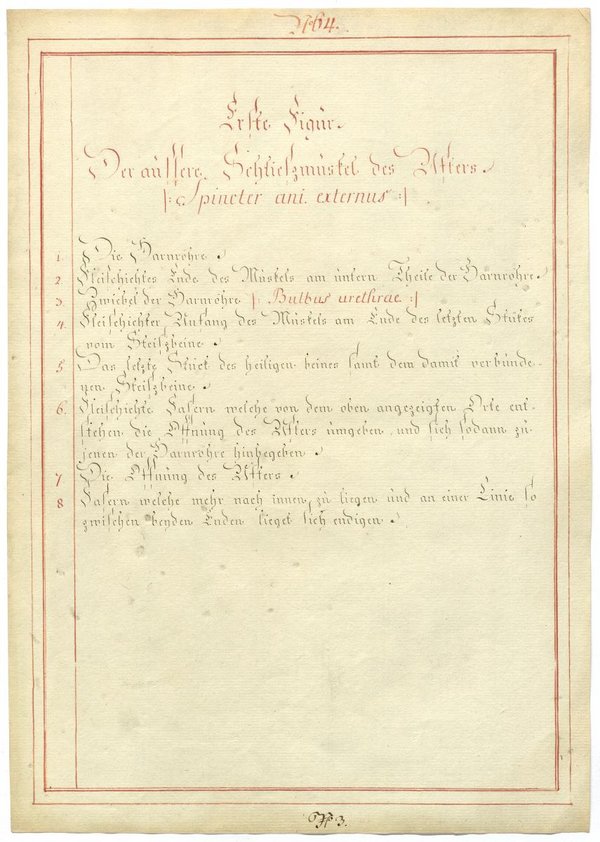 № 64.
Erste Figur.
Der aüssere Schlieszmüskel des Afters.
|: Spincter ani externus :|
1 Die Harnröhre.
2 Fleischichtes Ende des Müskels am üntern Theile der Harnröhre.
3. Zwiebel der Harnröhre |: Bulbus urethrae :|
4. Fleischichter Anfang des Müskels am Ende des letzten Stükes
vom Steiszbeine.
5. Das letzte Stück des heiligen beines samt dem damit verbünde-
nen Steiszbeine.
6. Fleischichte Fasern welche von dem oben angezeigten Orte ent-
stehen die Öffnung des Afters ümgeben, und sich sodann zü
jenen der Harnröhre hinbegeben.
7 Die Öffnung des Afters.
8 Fasern welche mehr nach innen zü liegen ünd an einer Linie so
zwischen beyden Enden lieget sich endigen.
№ 3.